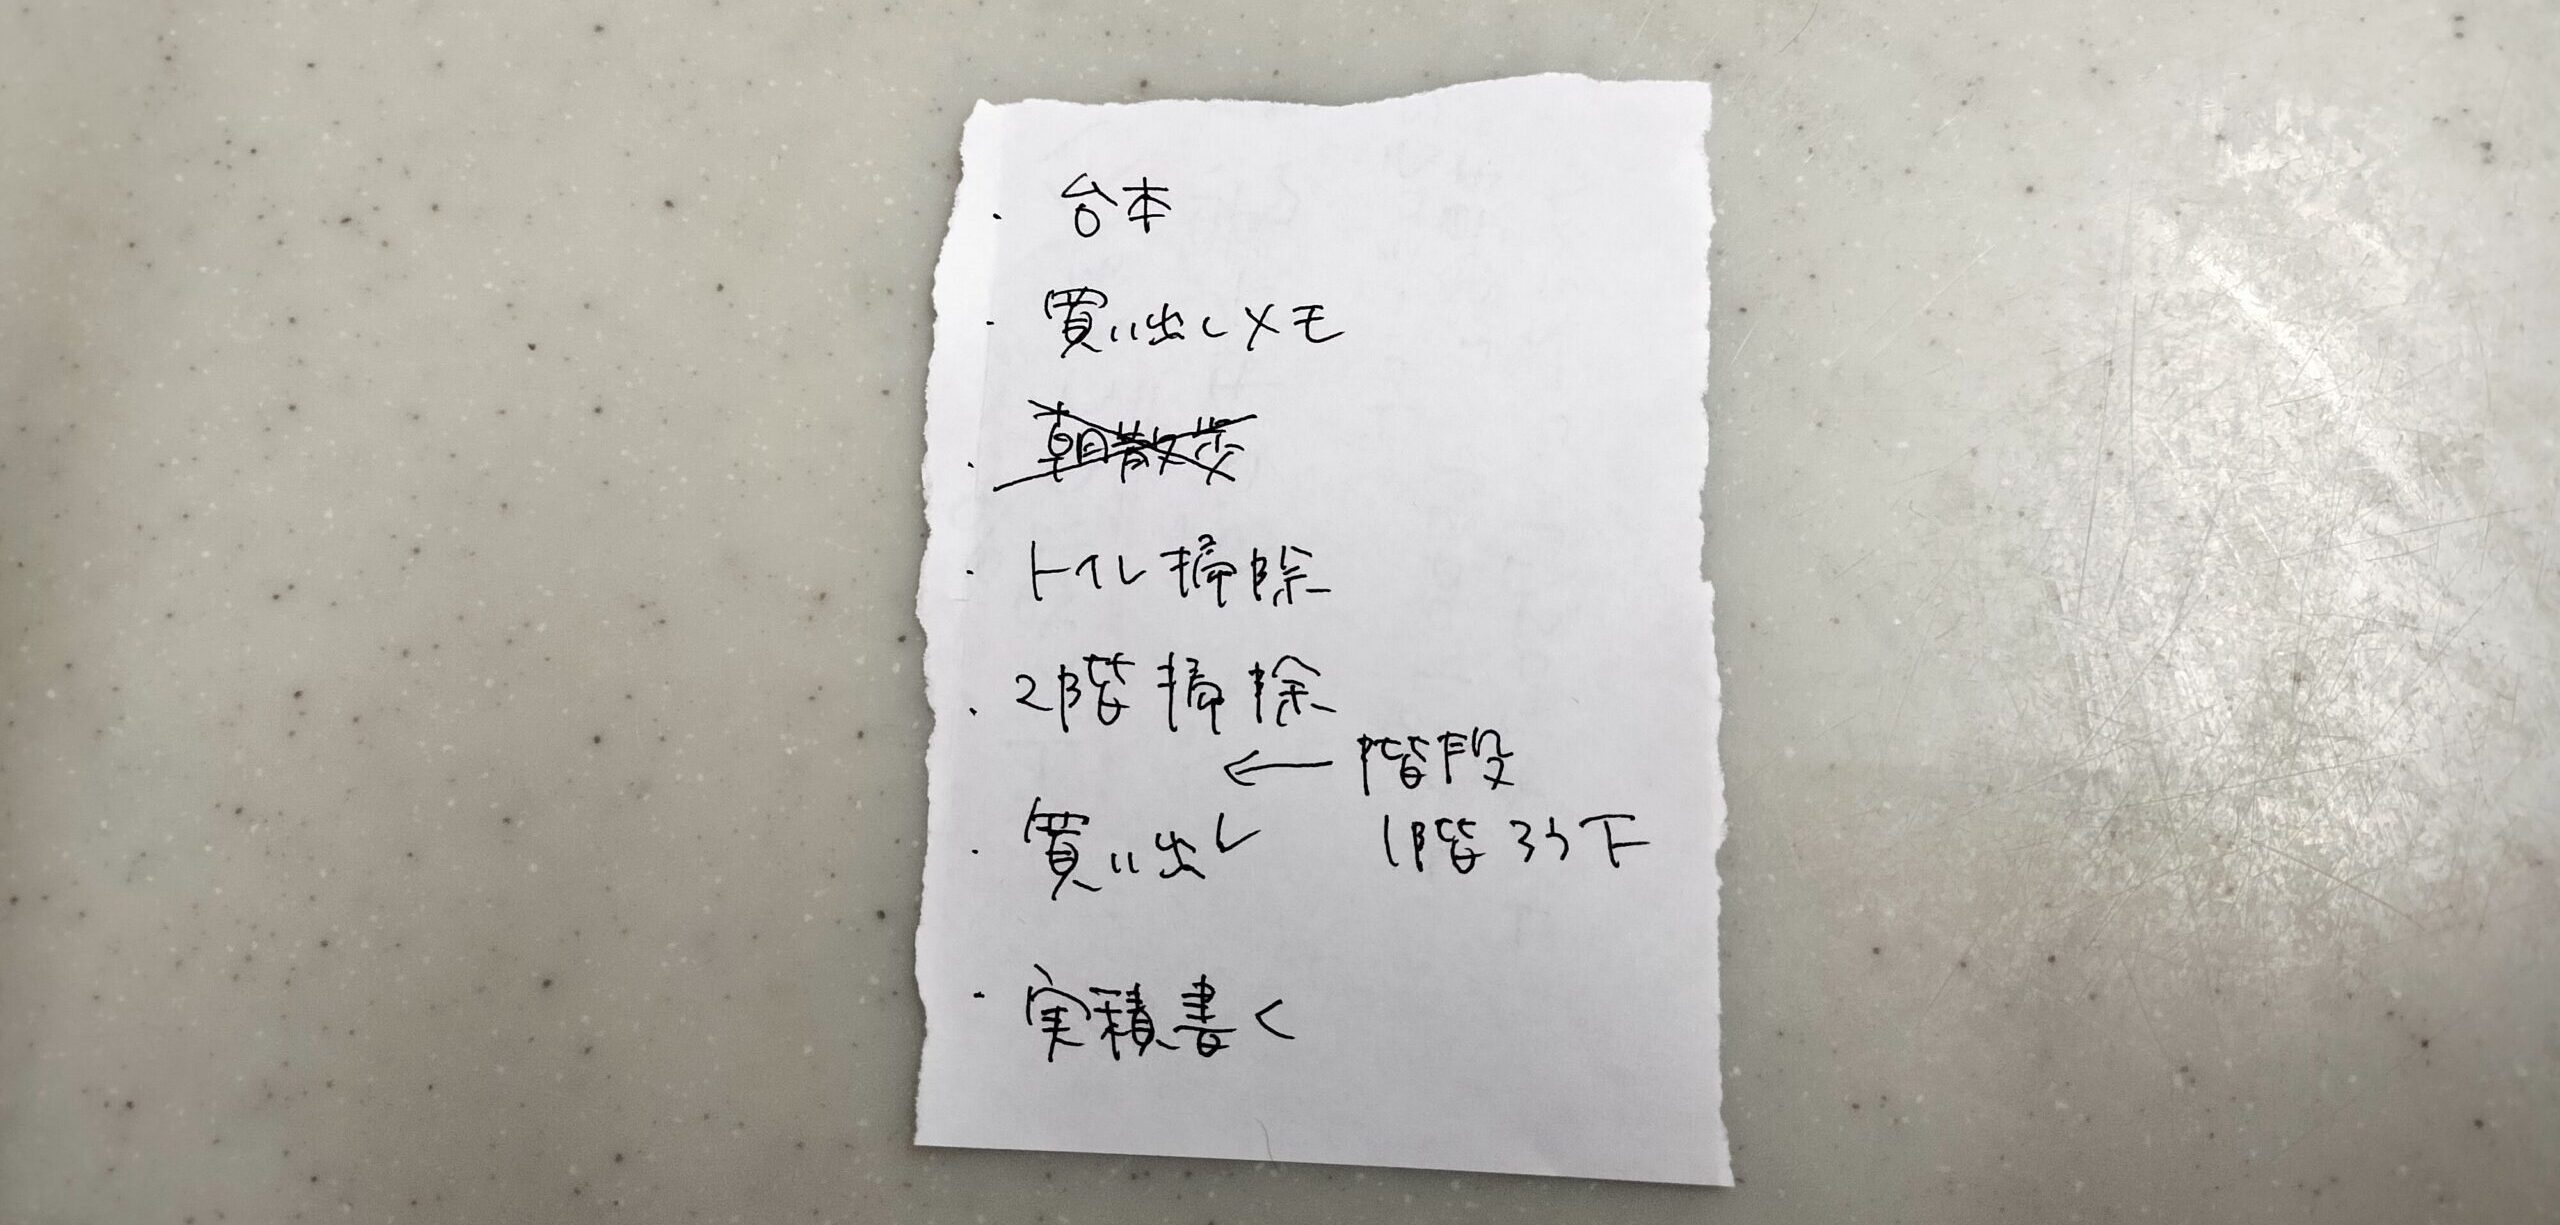 ・台本
・買い出しメモ
・朝散歩
・トイレ掃除
・2階掃除
←階段
1階ろう下
・買い出し
・実積書く